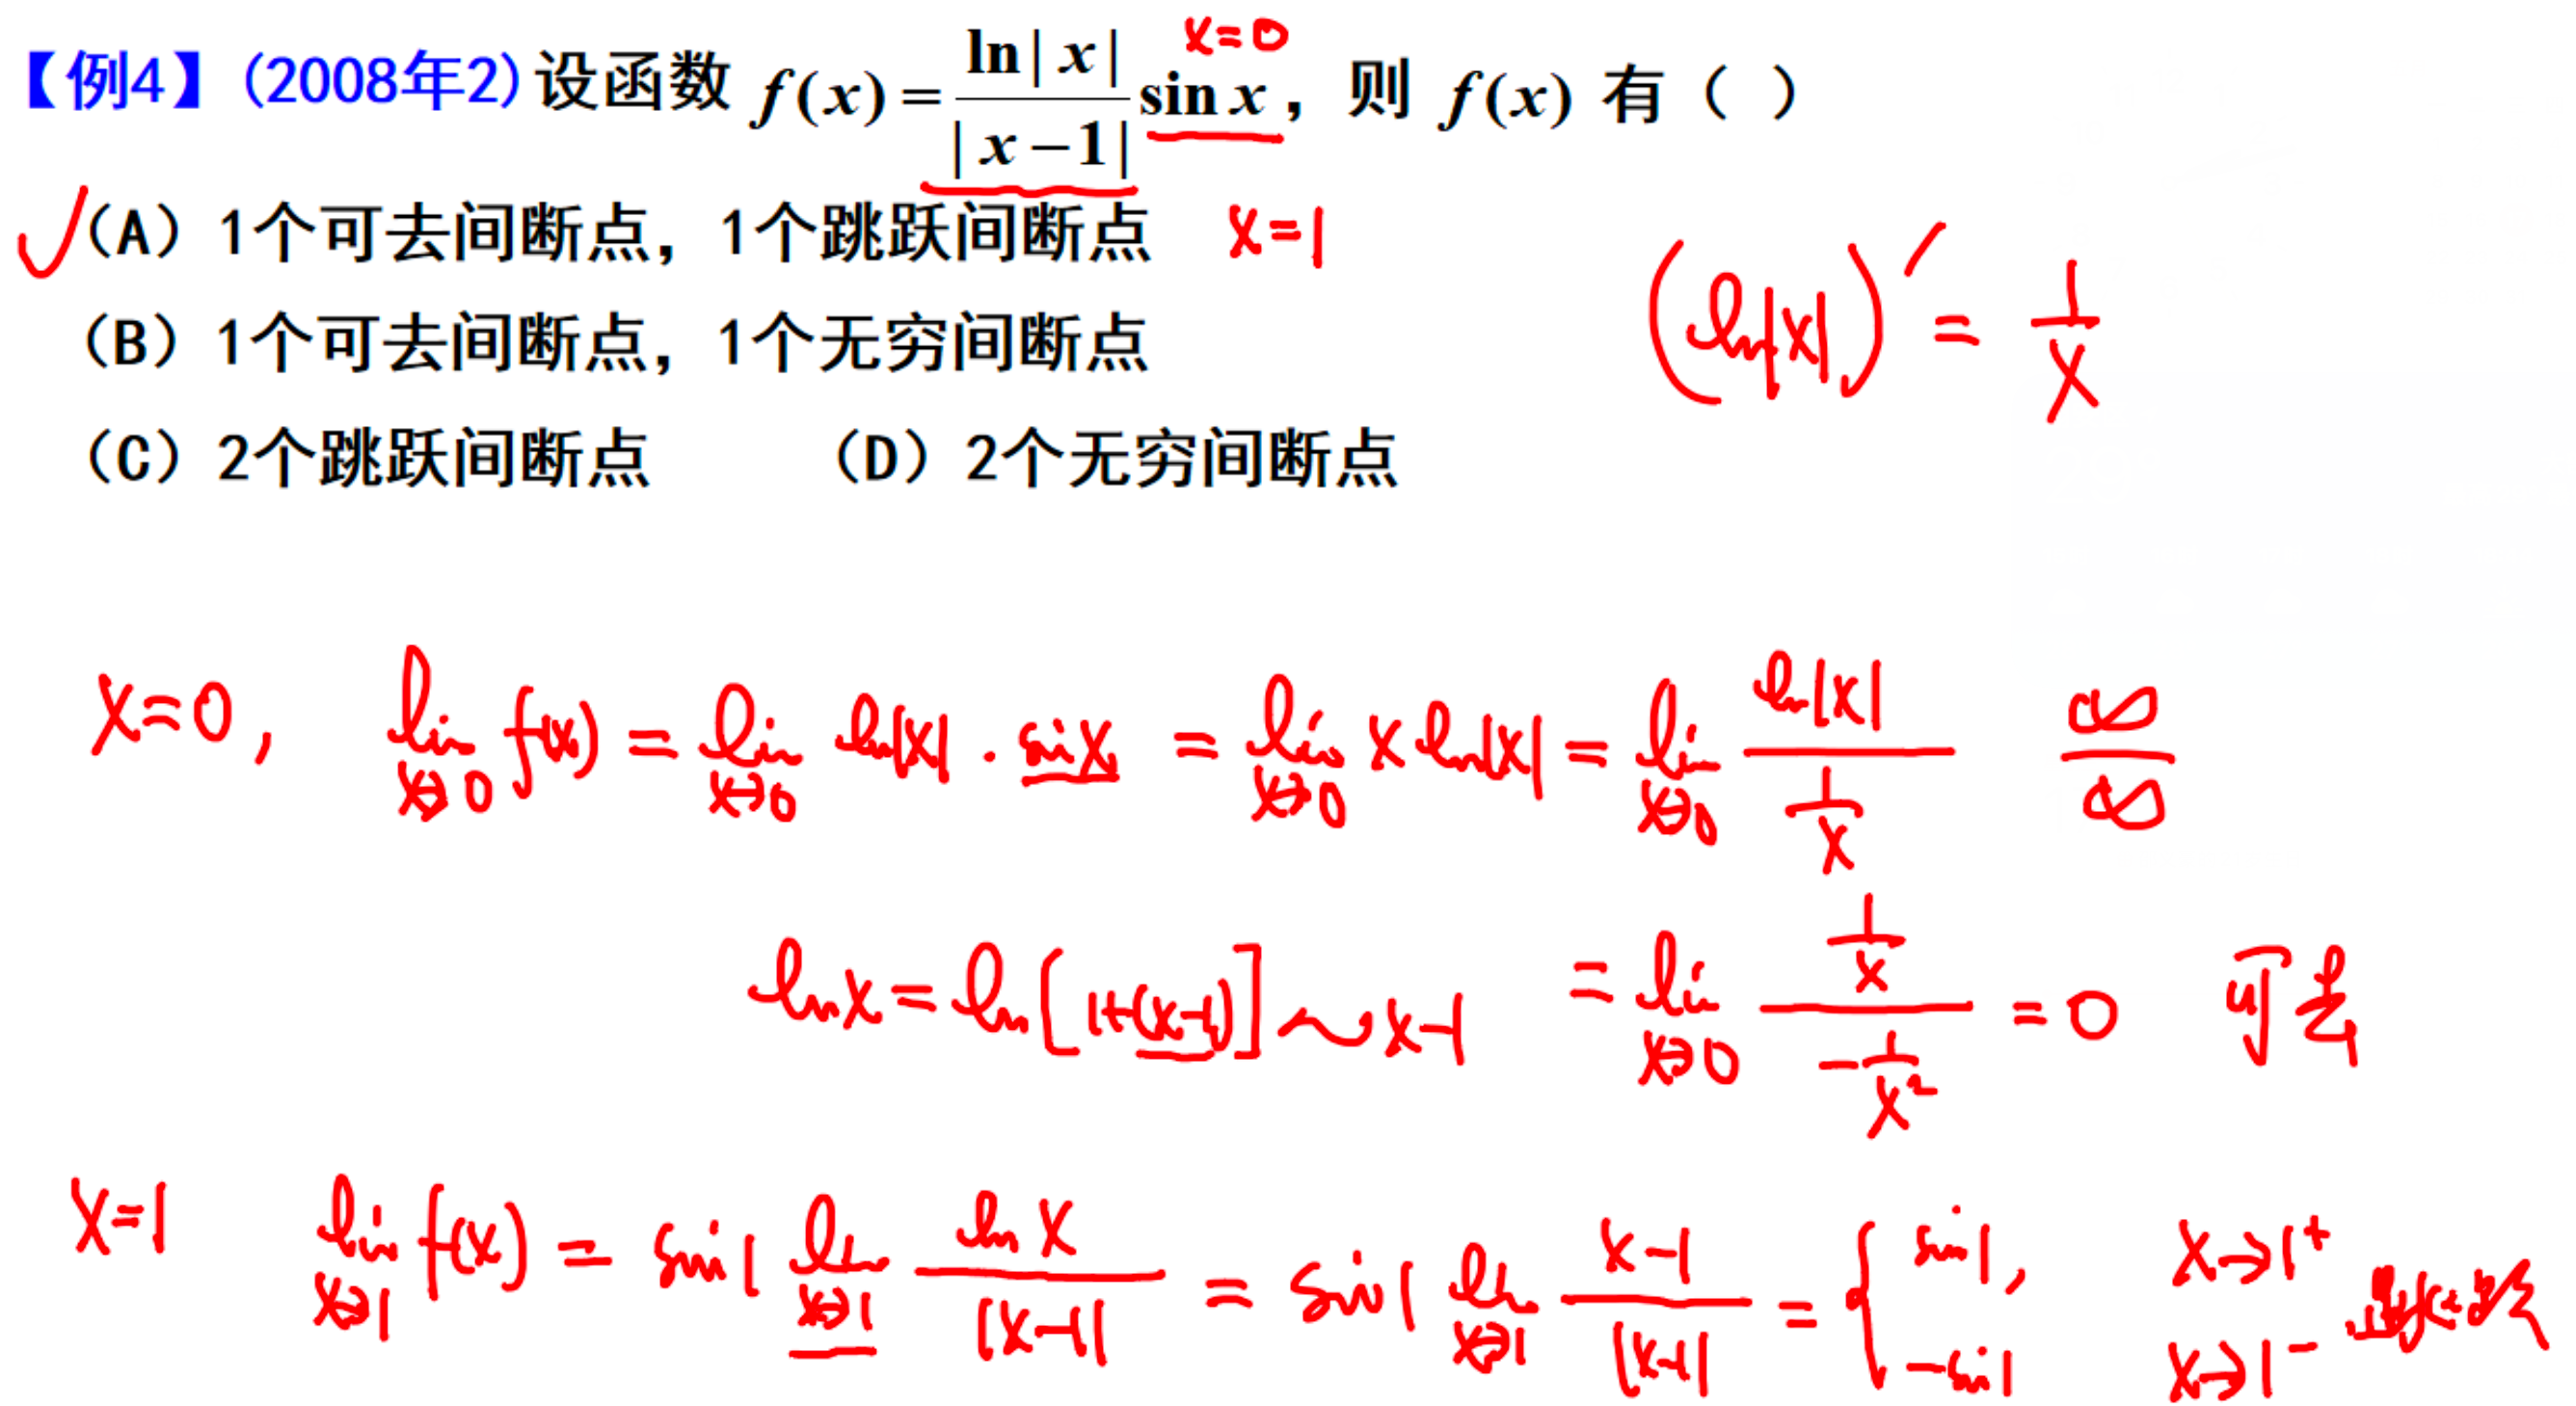 【例4】(2008年2)设函数 f(x)=\frac{ln|x|}{|x-1|}sin x，则 f(x) 有（ ）
x=0
√（A）1个可去间断点，1个跳跃间断点 x=1
（B）1个可去间断点，1个无穷间断点
(ln|x|)′ = \frac{1}{x}
（C）2个跳跃间断点 （D）2个无穷间断点
x=0, \lim_{x→0} f(x) = \lim_{x→0} ln|x| · sin x = \lim_{x→0} x ln|x| = \lim_{x→0} \frac{ln|x|}{\frac{1}{x}} \frac{∞}{∞}
ln x = ln[1+(x-1)] ~ x-1 = \lim_{x→0} \frac{\frac{1}{x}}{-\frac{1}{x^2}} = 0 可去
x=1 \lim_{x→1} f(x) = sin1 \lim_{x→1} \frac{ln x}{|x-1|} = sin1 \lim_{x→1} \frac{x-1}{|x-1|} = { sin1, x→1^+
-sin1 x→1^-